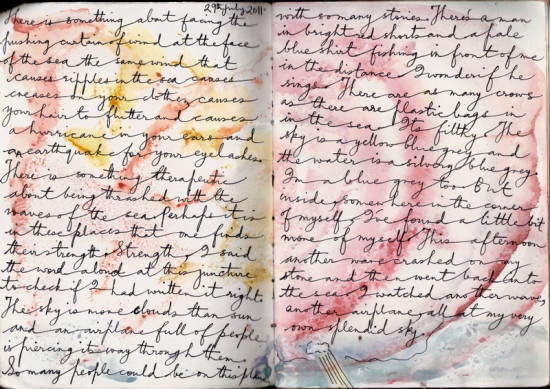 29th July 2011
There is something about facing the
pushing curtain of wind at the face
of the sea the same wind that
causes ripples in the sea causes
creases on your clothes causes
your hair to flutter and causes
a hurricane in your ears and
an earthquake for your eyelashes.
There is something therapeutic
about being thrashed with the
waves of the sea. Perhaps it is
in these places that one finds
their strength. Strength, I said
the word aloud at this juncture
to check if I had written it right.
The sky is more clouds than sun
and an airplane full of people
is piercing its way through them.
So many people could be on this plane
with so many stories. There's a man
in bright red shorts and a pale
blue shirt fishing in front of me
in the distance. I wonder if he
sings. There are as many crows
as there are plastic bags in
in the sea. Its filthy. The
sky is a yellow blue grey and
the water is a silvery blue grey.
I'm a blue grey too. But
inside, somewhere in the corner
of myself, I've found a little bit
more of myself. This afternoon
another wave crashed on my
stone and then went back into
the sea. I watched another wave,
another airplane, all at my very
own splendid sky.